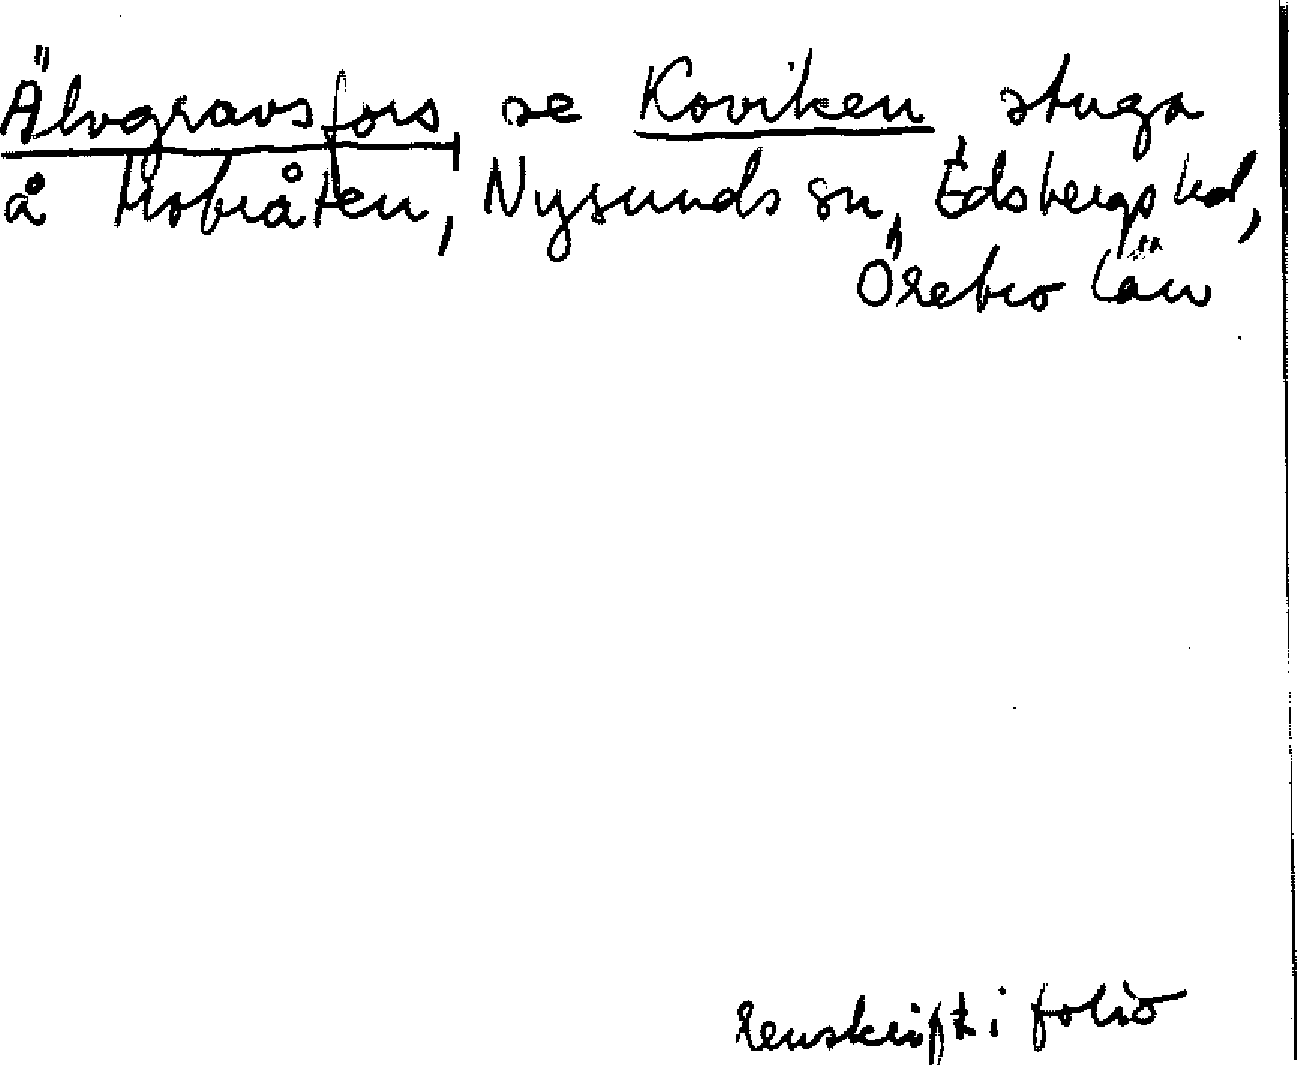 Älvgravsfors, se Koviken stuga
å Mobråten, Nysunds sn, Edsbergs hd,
Örebro län
Renskrift i folio